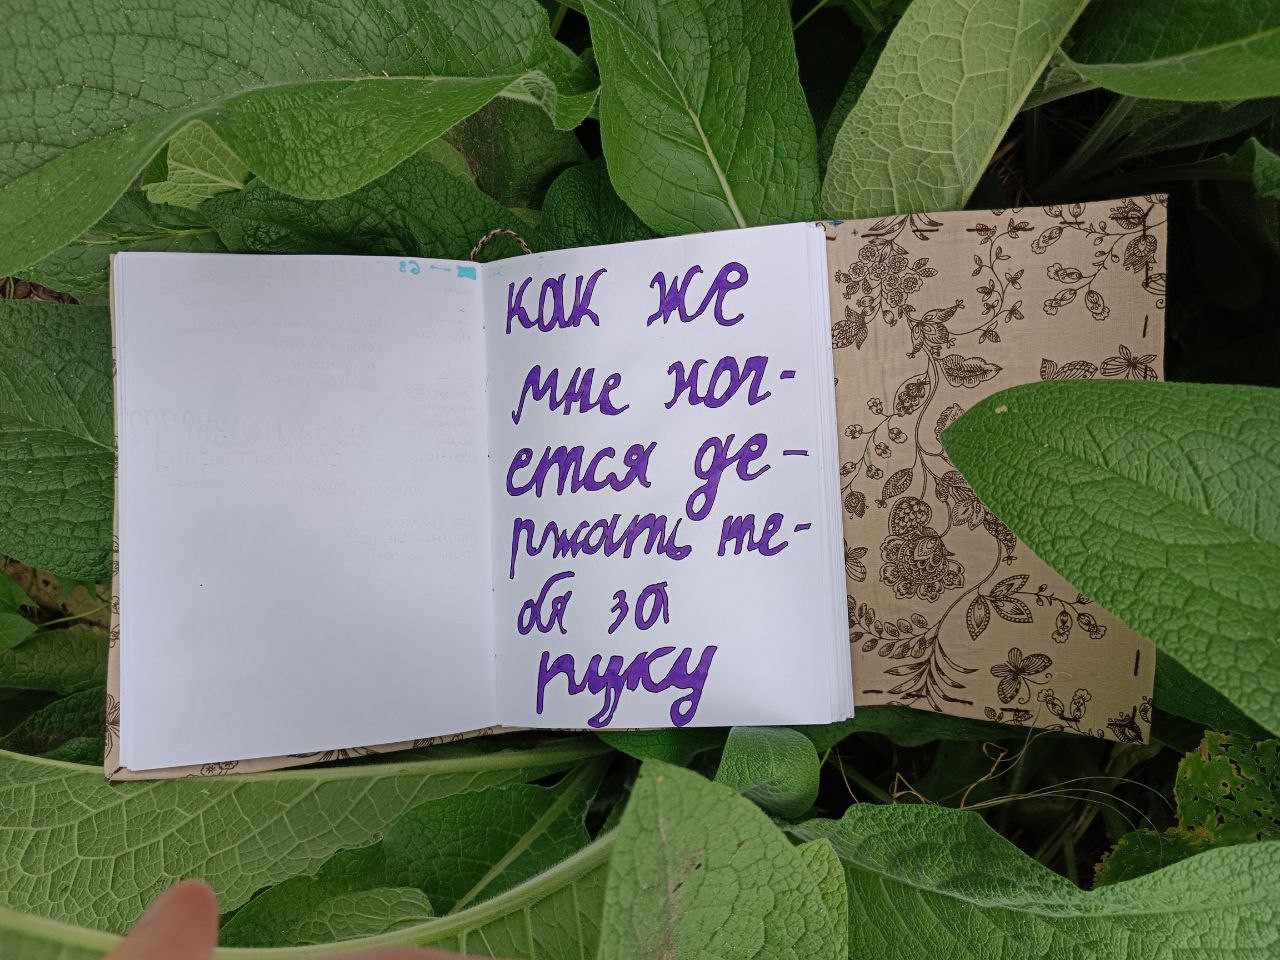 как же
мне хоч-
ется де-
ржать те-
бя за
руку